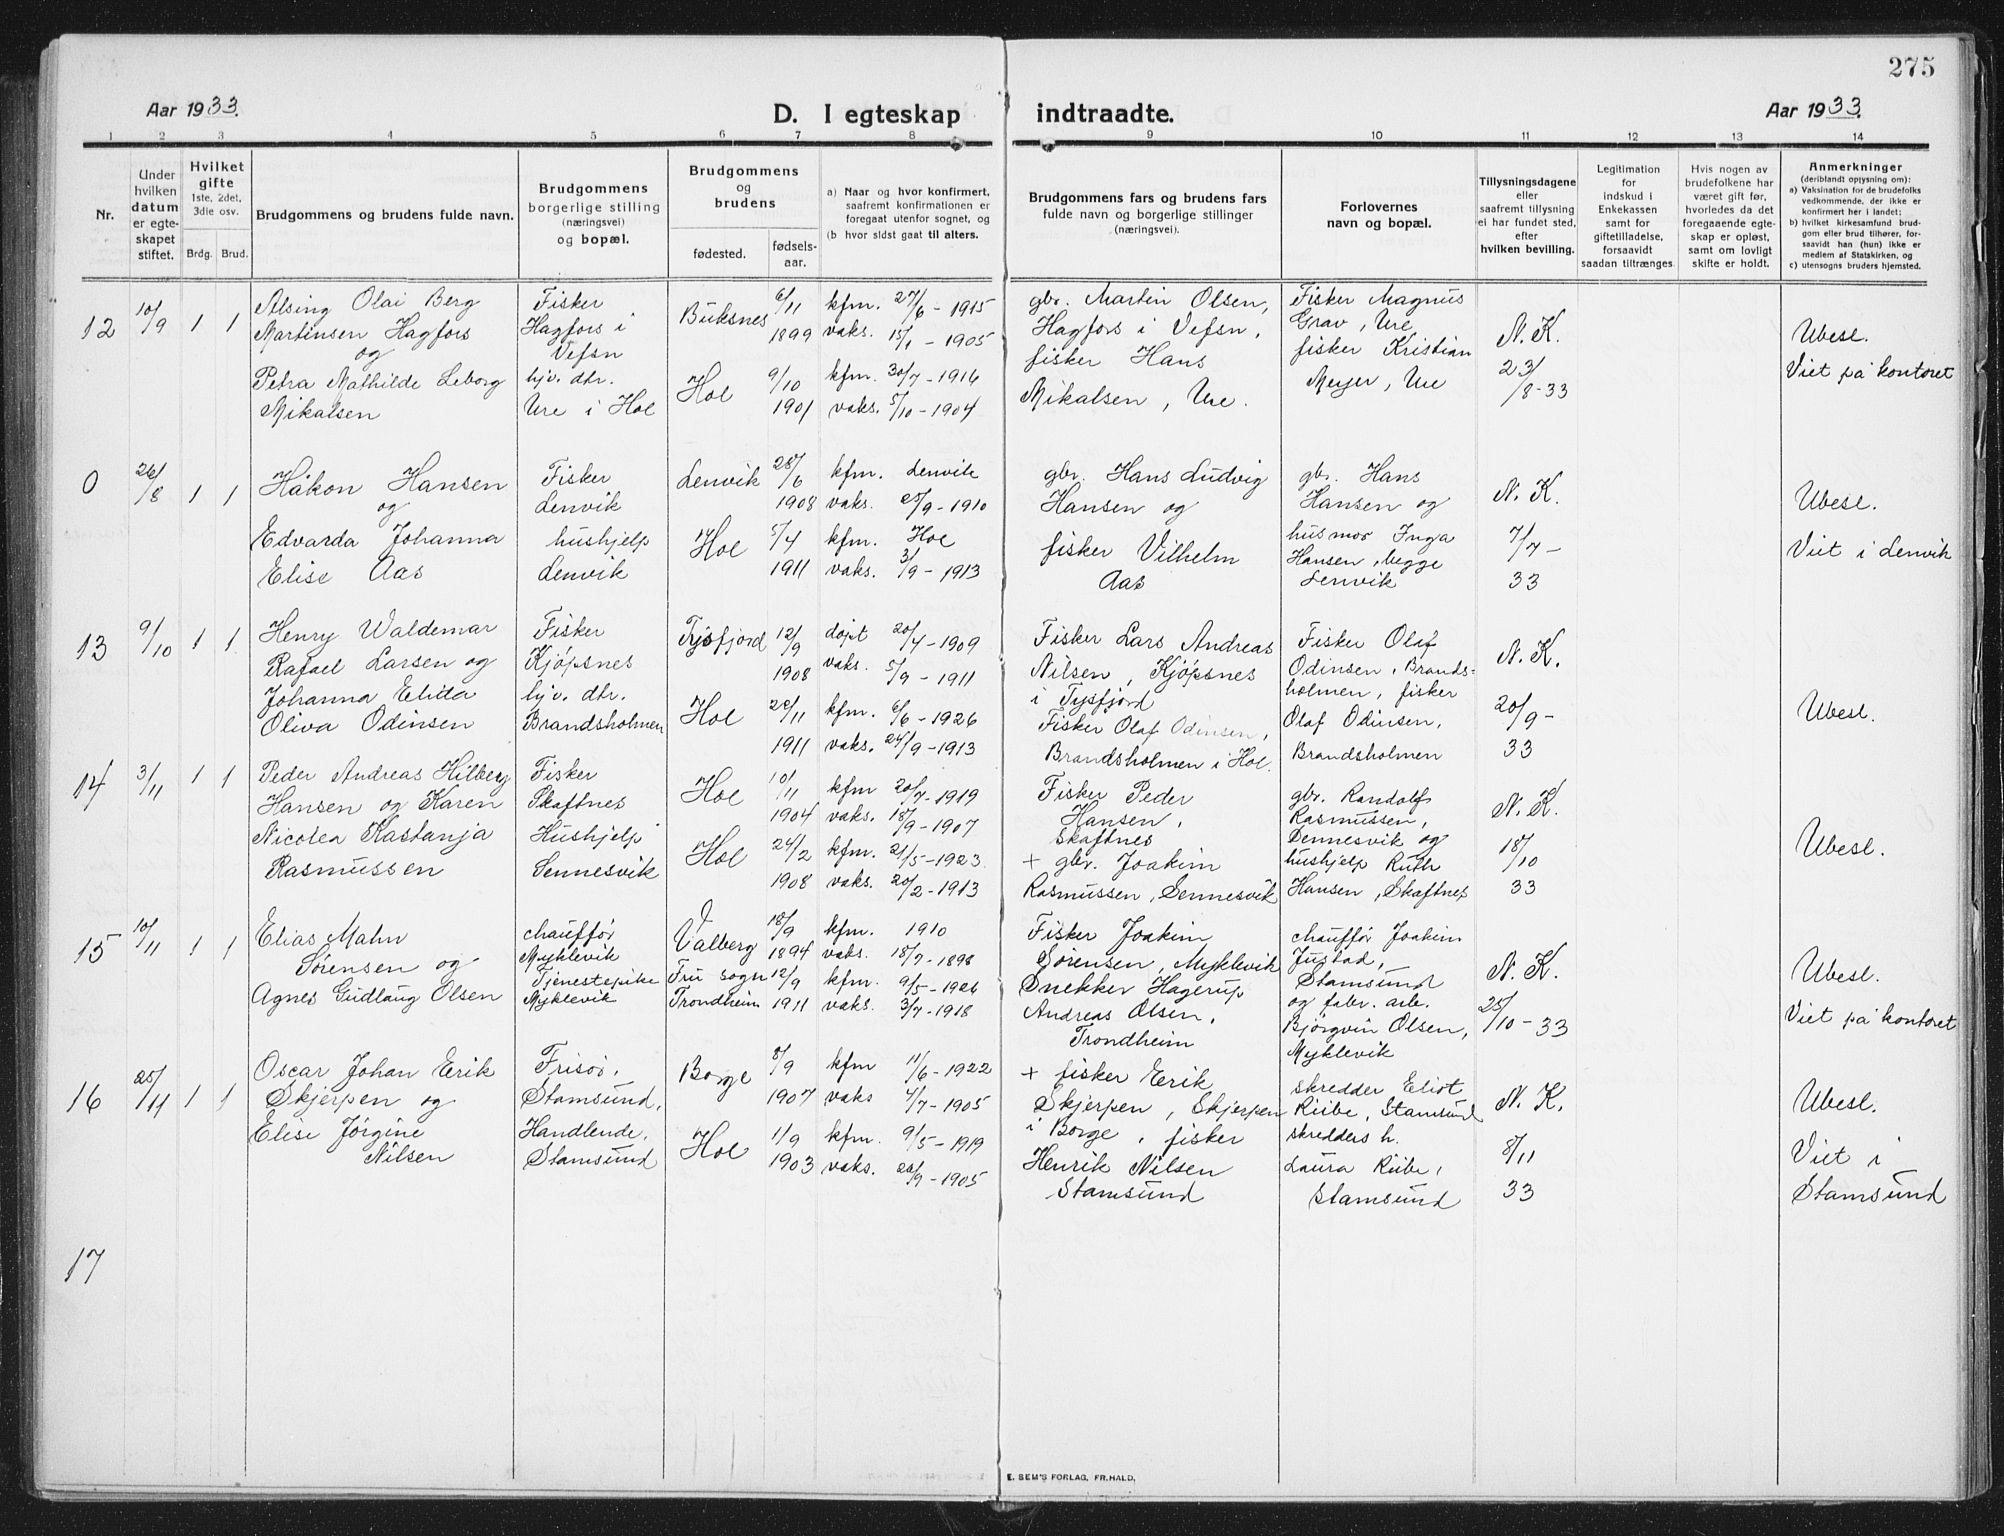 275
Aar 1933.
D. I egteskap indtraadte.
Aar 1933.
1 2 3 4 5 6 7 8 9 10 11 12 13 14
Nr.
Under hvilken datum er egteskapet stiftet.
Hvilket gifte 1ste, 2det, 3die osv.
Brdg. Brud.
Brudgommens og brudens fulde navn.
Brudgommens borgerlige stilling (næringsvei) og bopæl.
Brudgommens og brudens
fødested.
fødselsaar.
a) Naar og hvor konfirmert, saafremt konfirmationen er foregaat utenfor sognet, og
(b hvor sidst gaat til alters.
Brudgommens fars og brudens fars fulde navn og borgerlige stillinger (næringsvei).
Forlovernes navn og bopæl.
Tillysningsdagene eller saafremt tillysning ei har fundet sted, efter hvilken bevilling.
Legitimation for indskud i Enkekassen samt for giftetilladelse, forsaavidt saadan tiltrænges.
Hvis nogen av brudefolkene har været gift før, hvorledes da det foregaaende egteskap er opløst, samt om lovligt skifte er holdt.
Anmerkninger (deriblandt opysning om):
a) Vaksination for de brudefolks vedkommende, der ikke er konfirmert her i landet;
b) hvilket kirkesamfund brudgom eller brud tilhører, forsaavidt han (hun) ikke er medlem af Statskirken, og
c) utensogns bruders hjemsted.
12
10/9
1 1
Alsing Olai Berg
Martinsen Hagfors
og
Petra Mathilde Leborg
Mikalsen
Fisker
Hagfors i
Vefsn
hjv. dtr.
Ure i Hol
Buksnes
6/11
1899
Hol
9/10
1901
kfm. 27/6 - 1915
vaks. 15/1 - 1905
kfm. 30/7 - 1916
vaks. 5/10 - 1904
gbr. Martin Olsen,
Hagfors i Vefsn,
fisker Hans
Mikalsen, Ure.
Fisker Magnus
Grav, Ure,
fisker Kristian
Meyer, Ure
N. K.
23/8-33
Ubesl.
Viet på kontoret
0
26/8
1 1
Håkon Hansen
og
Edvarda Johanna
Elise Aas
Fisker
Lenvik
hushjelp
Lenvik
Lenvik
28/6
1908
Hol
5/4
1911
kfm. Lenvik
vaks. 25/9 - 1910
kfm. Hol
vaks. 3/9 - 1913
gbr. Hans Ludvig
Hansen og
fisker Vilhelm
Aas
gbr. Hans
Hansen og
husmor Inga
Hansen, begge
Lenvik
N. K.
7/7 -
33
Ubesl.
Viet i Lenvik
13
9/10
1 1
Henry Waldemar
Rafael Larsen og
Johanna Elida
Oliva Odinsen
Fisker
Kjøpsnes
hjv. dtr.
Brandsholmen
Tysfjord
12/9
1908
Hol
20/11
1911
døpt 20/4 - 1909
vaks. 5/9 - 1911
kfm. 6/6 - 1926
vaks. 24/9 - 1913
Fisker Lars Andreas
Nilsen, Kjøpsnes
i Tysfjord
Fisker Olaf Odinsen,
Brandsholmen i Hol.
Fisker Olaf
Odinsen, Brands-
holmen, fisker
Olaf Odinsen,
Brandsholmen
N. K.
20/9 -
33
Ubesl.
14
3/11
1 1
Peder Andreas Hilberg
Hansen og Karen
Nicolea Kastanja
Rasmussen
Fisker
Skaftnes
Hushjelp
Sennesvik
Hol
10/11
1904
Hol
24/2
1908
kfm 20/7 - 1919
vaks. 18/9 - 1907
kfm. 21/5 - 1923
vaks. 20/2 - 1913
Fisker Peder
Hansen,
Skaftnes
+ gbr. Joakim
Rasmussen, Sennesvik
gbr. Randolf
Rasmussen,
Sennesvik og
hushjelp Ruth
Hansen, Skaftnes
N. K.
18/10
33
Ubesl.
15
10/11
1 1
Elias Mahn
Sørensen og
Agnes Gudlaug Olsen
chauffør
Myklevik
Tjenestepike
Myklevik
Valberg
18/9
1894
Fru sogn
Trondheim
12/9
1911
kfm. 1910
vaks. 18/7 - 1898
kfm. 9/5 - 1926
vaks. 3/7 - 1918
Fisker Joakim
Sørensen, Myklevik
Snekker Hagerup
Andreas Olsen,
Trondheim
chauffør Joakim
Justad,
Stamsund
og fabr. arb.
Bjørgvin Olsen,
Myklevik
N. K.
25/10 - 33
Ubesl.
Viet på kontoret
16
25/11
1 1
Oscar Johan Erik
Skjerpen og
Elise Jørgine
Nilsen
Frisør,
Stamsund,
Handlende,
Stamsund
Borge
8/9
1907
Hol
1/9
1903
kfm 11/6 - 1922
vaks 4/7 - 1905
kfm. 9/5 - 1919
vaks. 28/9 - 1905
+ fisker Erik
Skjerpen, Skjerpen
i Borge, fisker
Henrik Nilsen
Stamsund
skredder Eliot
Riibe, Stamsund
skredders h.
Laura Riibe,
Stamsund
N. K.
8/11
33
Ubesl.
Viet i
Stamsund
17
E. SEM'S FORLAG, FR.HALD.